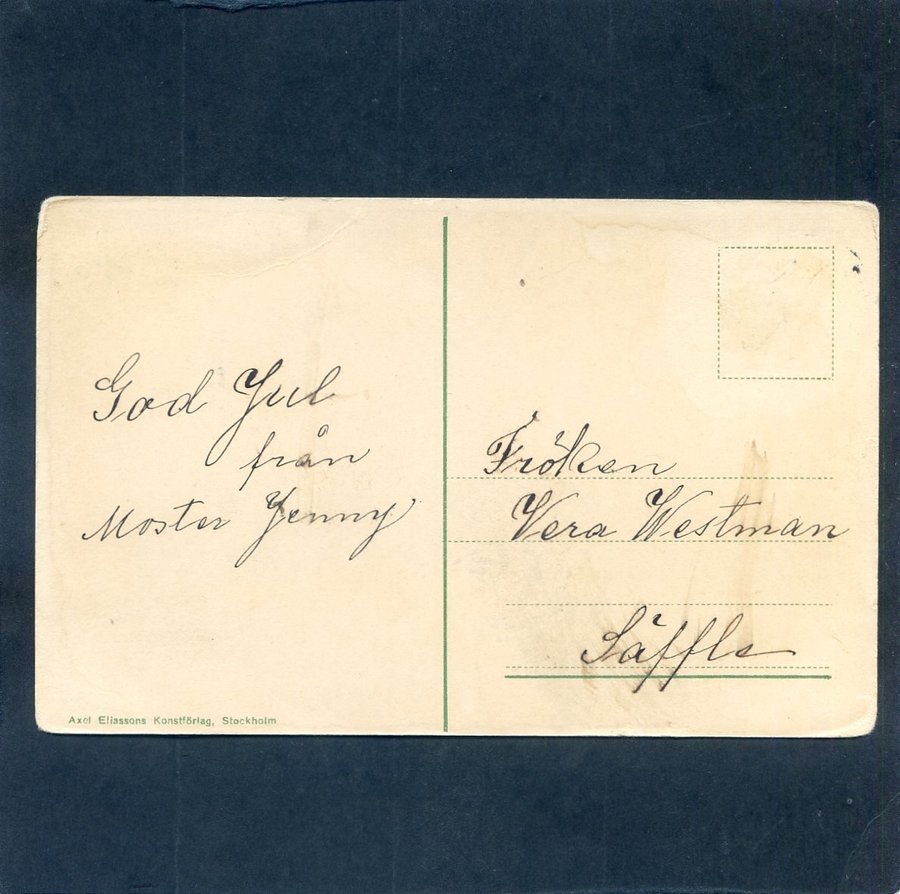 God Jul
från
Moster Jenny
Fröken
Vera Westman
Säffle
Axel Eliassons Konstförlag, Stockholm